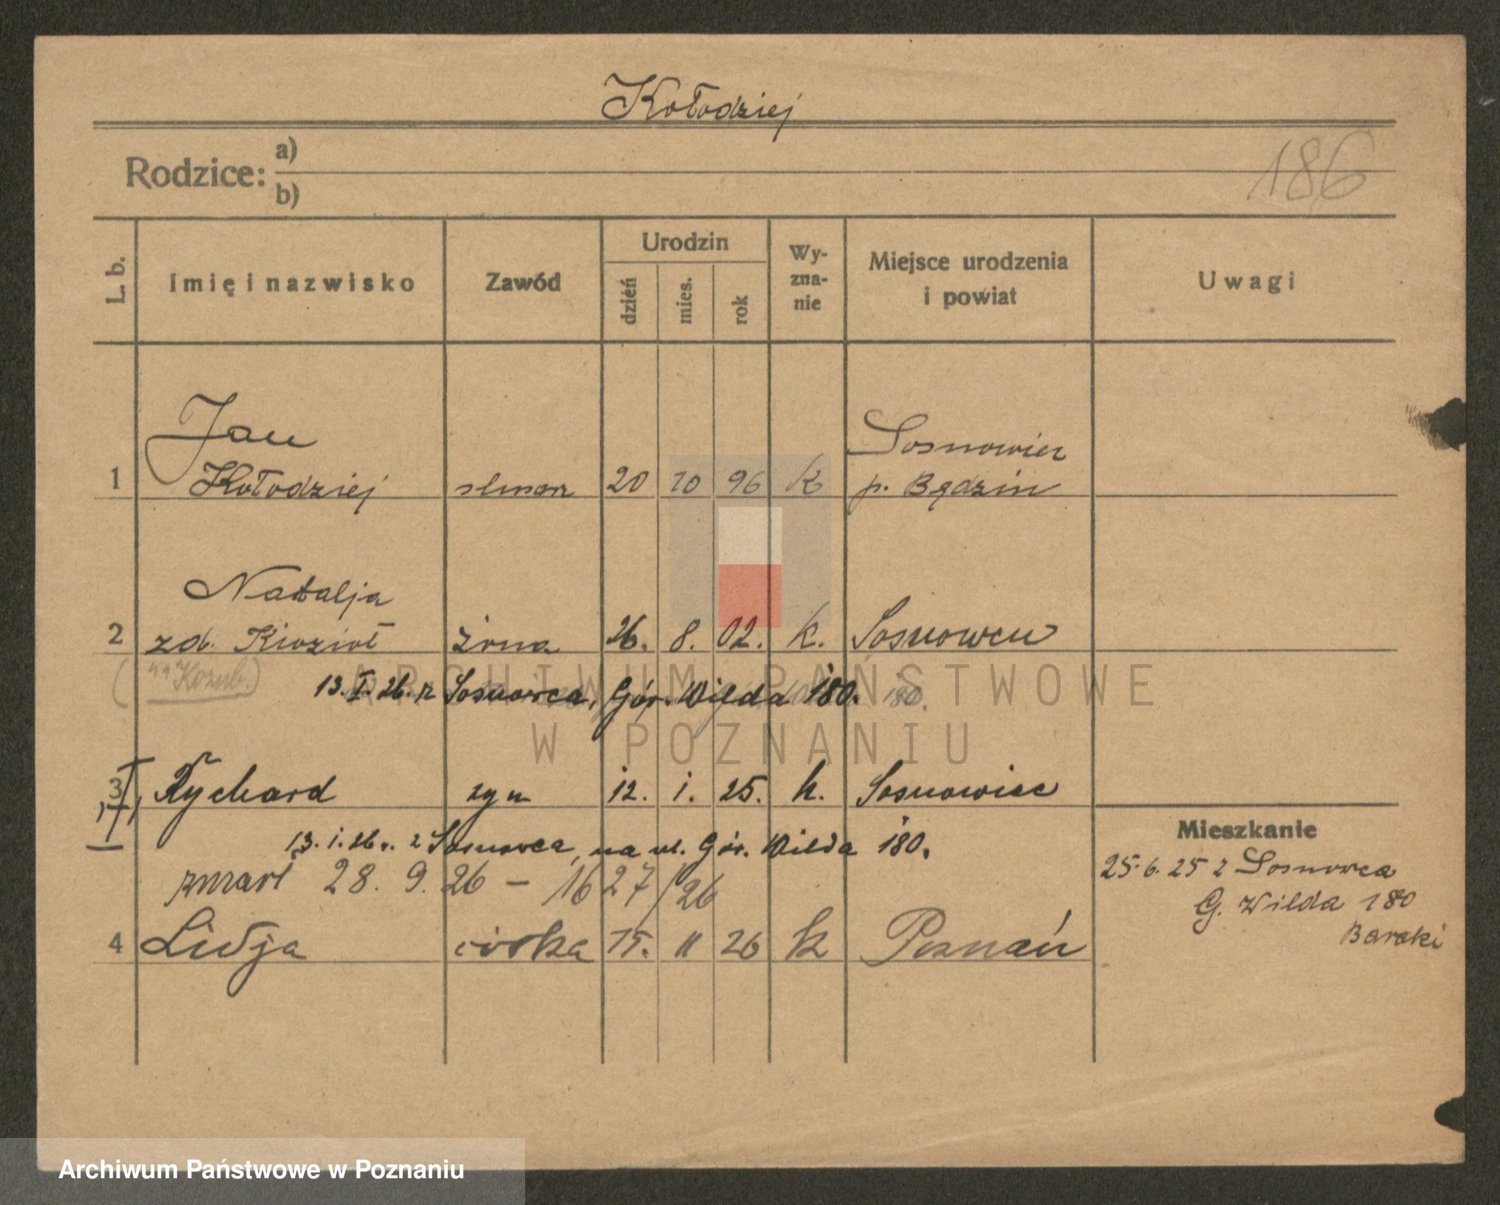 Kołodziej
186
Rodzice: a)
b)
L. b. Imię i nazwisko Zawód Urodzin dzień mies. rok Wy-zna-nie Miejsce urodzenia i powiat Uwagi
Jan Sosnowiec
1 Kołodziej 20 10 96 k p. Będzin
Natalja
2 zd. żona 26. 8. 02. k. Sosnowcu
13. I. 26. z Sosnowca, Gór. Wilda 180. 180.
3 Rychard syn 12. 1. 25. k. Sosnowiec
13. 1. 26 r. z Sosnowca, na ul. Gór. Wilda 180.
Mieszkanie
25. 6. 25 z Sosnowca
G. Wilda 180
Baraki
zmarł 28. 9. 26 — 1627/26
4 Lidja córka 15. 11 26 k Poznań
ARCHIWUM PAŃSTWOWE
W POZNANIU
Archiwum Państwowe w Poznaniu